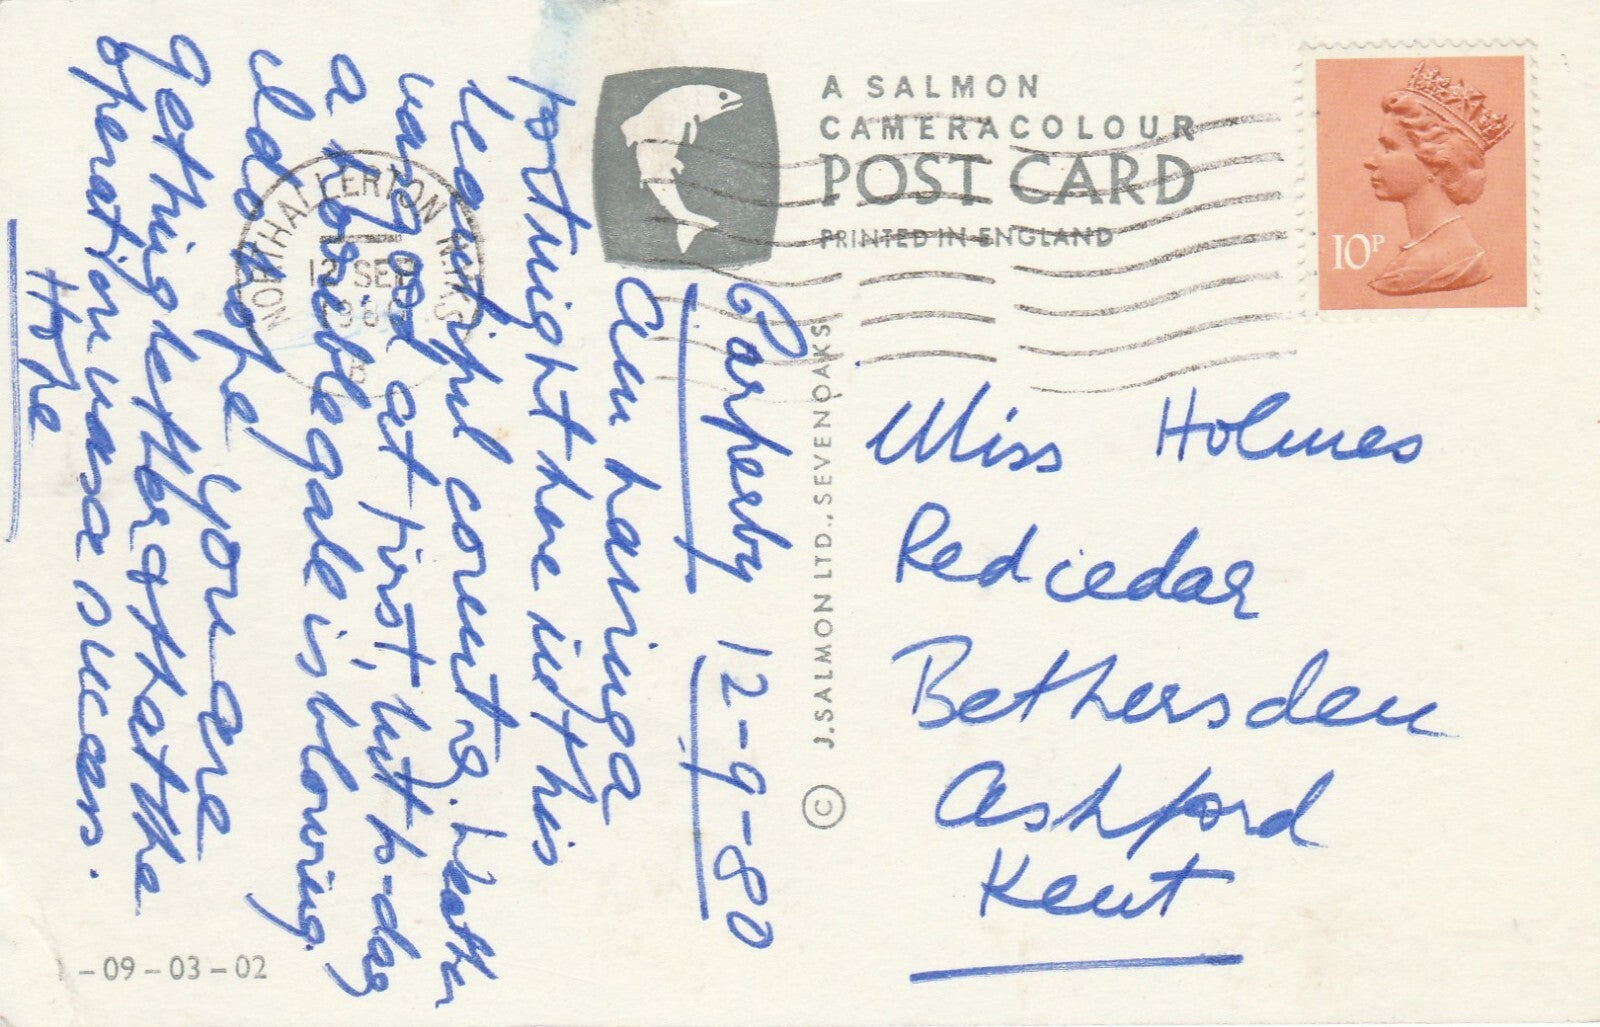 A SALMON
CAMERACOLOUR
POST CARD
PRINTED IN ENGLAND
10P
NORTHALLERTON N. YKS
12 SEP
1980
B
Carperby 12-9-80
Am having a
fortnight here in this
beautiful country. Weather
was good at first, but to-day
a horrible gale is blowing.
I do hope you are
getting better & that the
operation was a success.
Hope
Miss Holmes
Redcedar
Bethersden
Ashford
Kent
© J. SALMON LTD., SEVENOAKS
1-09-03-02